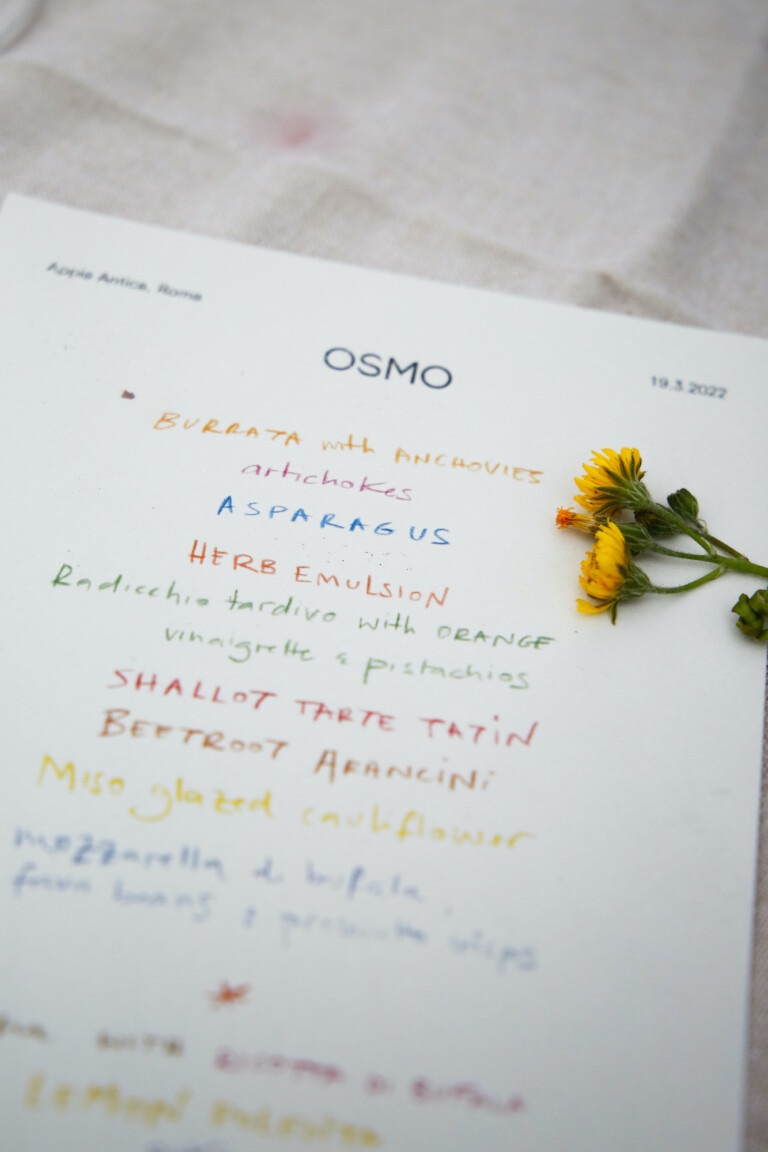 Appia Antica, Roma
OSMO
19.3.2022
BURRATA with ANCHOVIES
artichokes
ASPARAGUS
HERB EMULSION
Radicchio tardivo with ORANGE
vinaigrette & pistachios
SHALLOT TARTE TATIN
BEETROOT ARANCINI
Miso glazed cauliflower
mozzarella di bufala,
fava beans & prosciutto crisps
WITH RICOTTA DI BUFALA
LEMON POLENTA